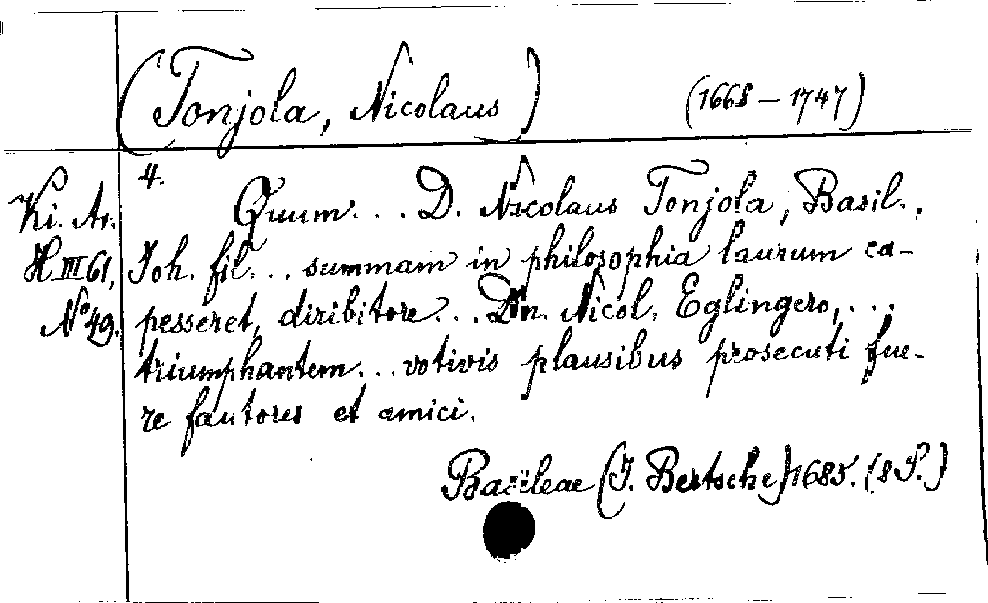 (Tonjola, Nicolaus) (1668 – 1747)
Ki. Ar.
H III 61,
No 49.
4.
Quum... D. Nicolaus Tonjola, Basil.,
Joh. fil... summam in philosophia laurum ca-
pesseret, diribitore... Dn. Nicol. Eglingero,...
triumphantem... votivis plausibus prosecuti fue-
re fautores et amici.
Basileae (J. Bertsche) 1685. (8 S.)